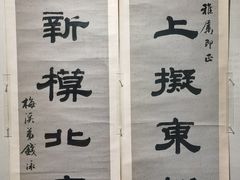 雅屬即正
上擬東
新模北
梅溪弟錢泳